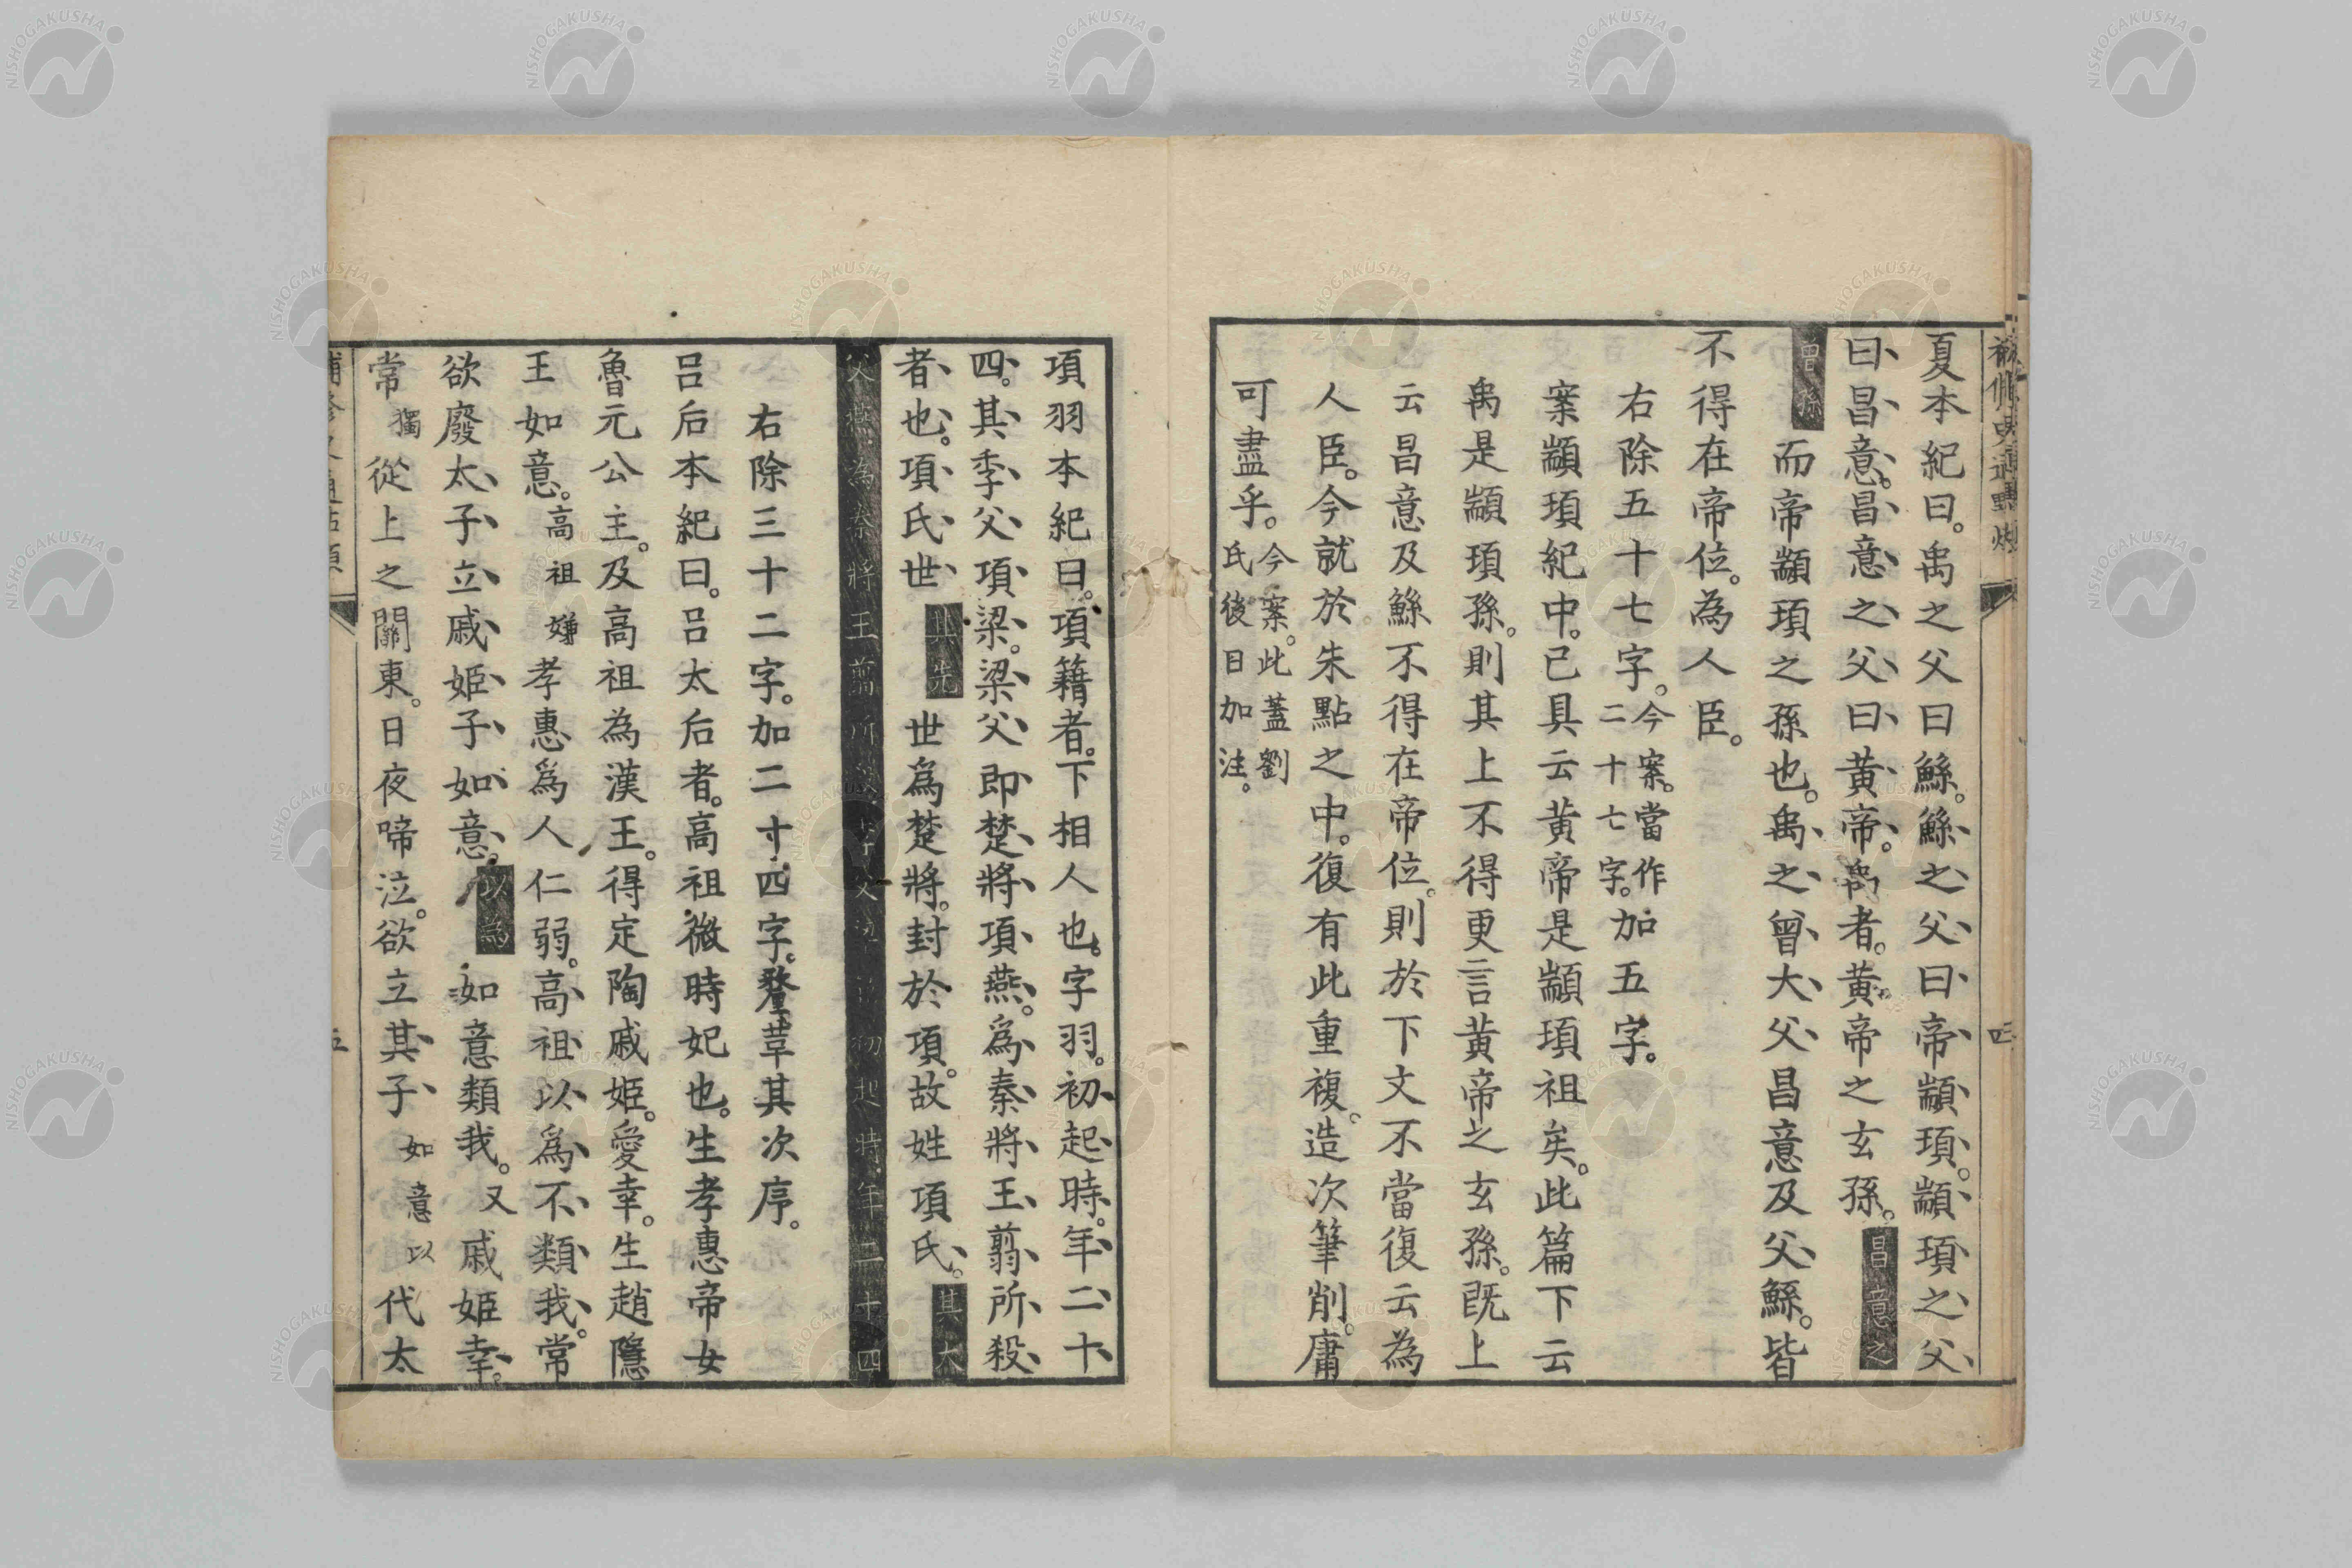 夏本紀曰。禹之父曰鯀。鯀之父曰帝顓頊。顓頊之父
曰昌意。昌意之父曰黃帝。禹者。黃帝之玄孫。昌意之
曾孫而帝顓頊之孫也。禹之曾大父昌意及父鯀。皆
不得在帝位。為人臣。
右除五十七字。今案。當作二十七字。加五字。
案顓頊紀中。已具云黃帝是顓頊祖矣。此篇下云
禹是顓頊孫。則其上不得更言黃帝之玄孫。既上
云昌意及鯀不得在帝位。則於下文不當復云為
人臣。今就於朱點之中。復有此重複。造次筆削。庸
可盡乎。今案。此蓋劉氏後日加注。
四
項羽本紀曰。項籍者。下相人也。字羽。初起時。年二十
四。其季父項梁。梁父即楚將項燕。為秦將王翦所殺
者也。項氏世其先世為楚將。封於項。故姓項氏。其大
父燕為秦將王翦所殺季父梁初起時年二十四
右除三十二字。加二十四字。釐革其次序。
呂后本紀曰。呂太后者。高祖微時妃也。生孝惠帝女
魯元公主。及高祖為漢王。得定陶戚姬。愛幸。生趙隱
王如意。高祖嫌孝惠為人仁弱。高祖以為不類我。常
欲廢太子立戚姬子如意。以為如意類我。又戚姬幸。
常獨從上之關東。日夜啼泣。欲立其子如意以代太
五
NISHOGAKUSHA